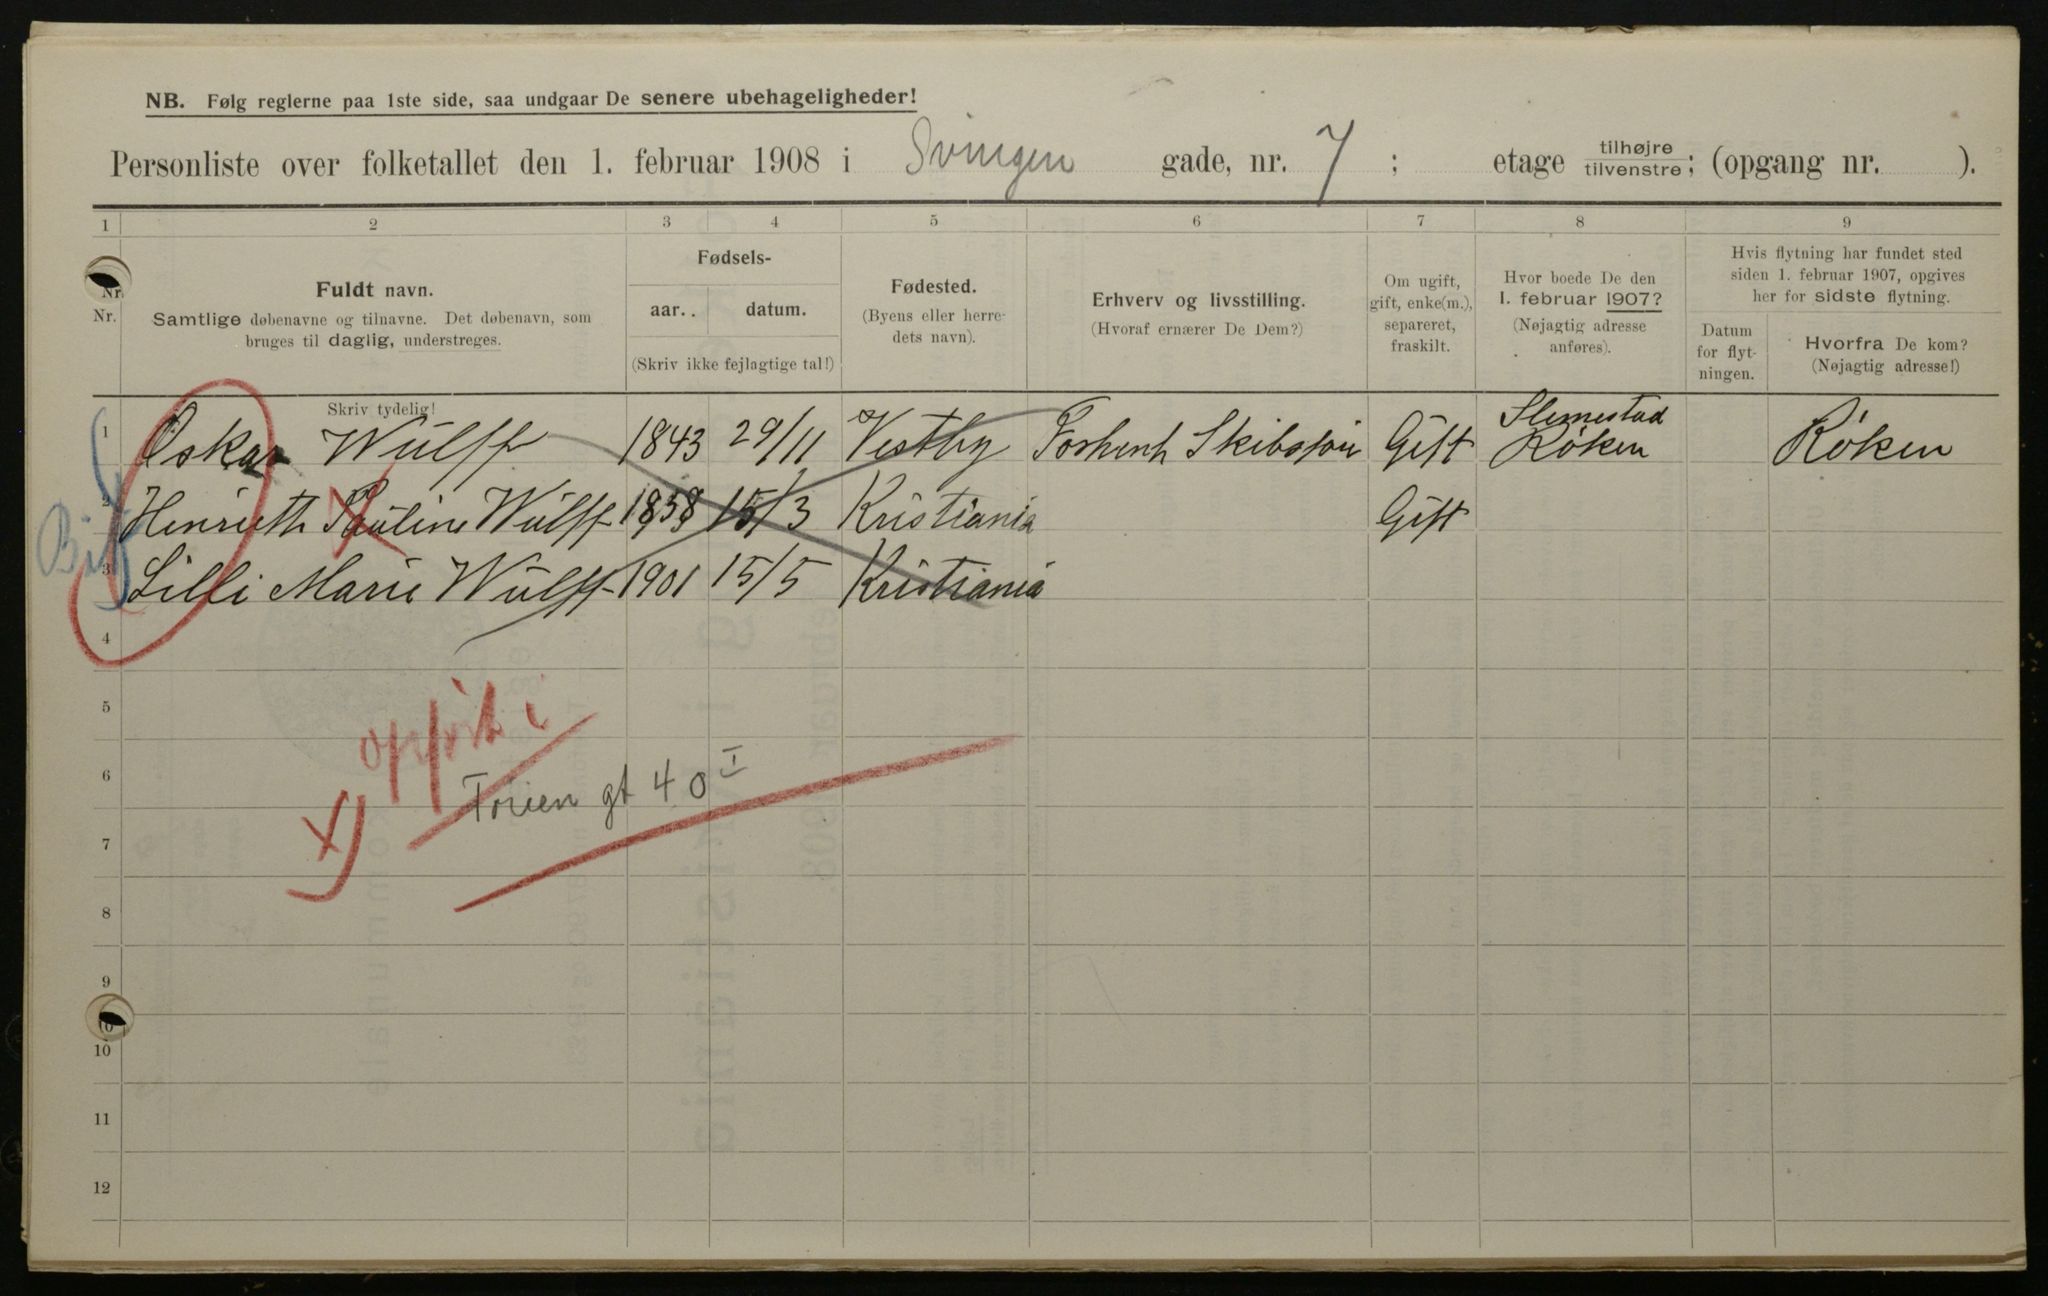 NB. Følg reglerne paa 1ste side, saa undgaar De senere ubehageligheder!
Personliste over folketallet den 1. februar 1908 i Svingen gade, nr. 7 ; etage tilhøjre tilvenstre; (opgang nr. ).
1 2 3 4 5 6 7 8 9
Nr. Nr.
Fuldt navn.
Samtlige døbenavne og tilnavne. Det døbenavn, som
bruges til daglig, understreges.
Fødsels-
aar. . datum.
(Skriv ikke fejlagtige tal!)
Fødested.
(Byens eller herre-
dets navn).
Erhverv og livsstilling.
(Hvoraf ernærer De Dem?)
Om ugift,
gift, enke(m.),
separeret,
fraskilt.
Hvor boede De den
1. februar 1907?
(Nøjagtig adresse
anføres).
Hvis flytning har fundet sted
siden 1. februar 1907, opgives
her for sidste flytning.
Datum
for flyt-
ningen.
Hvorfra De kom?
(Nøjagtig adresse!)
Skriv tydelig!
Slemestad
1 Oskar Wulff 1843 29/11 Vestby Gift Røken Røken
2 Henrieth Pauline Wulff 1838 15/3 Kristiania Gift
3 Lilli Marie Wulff 1901 15/5 Kristiania
4
5
opført i
6
gt 40 I
7
X)
8
9
10
10
11
12